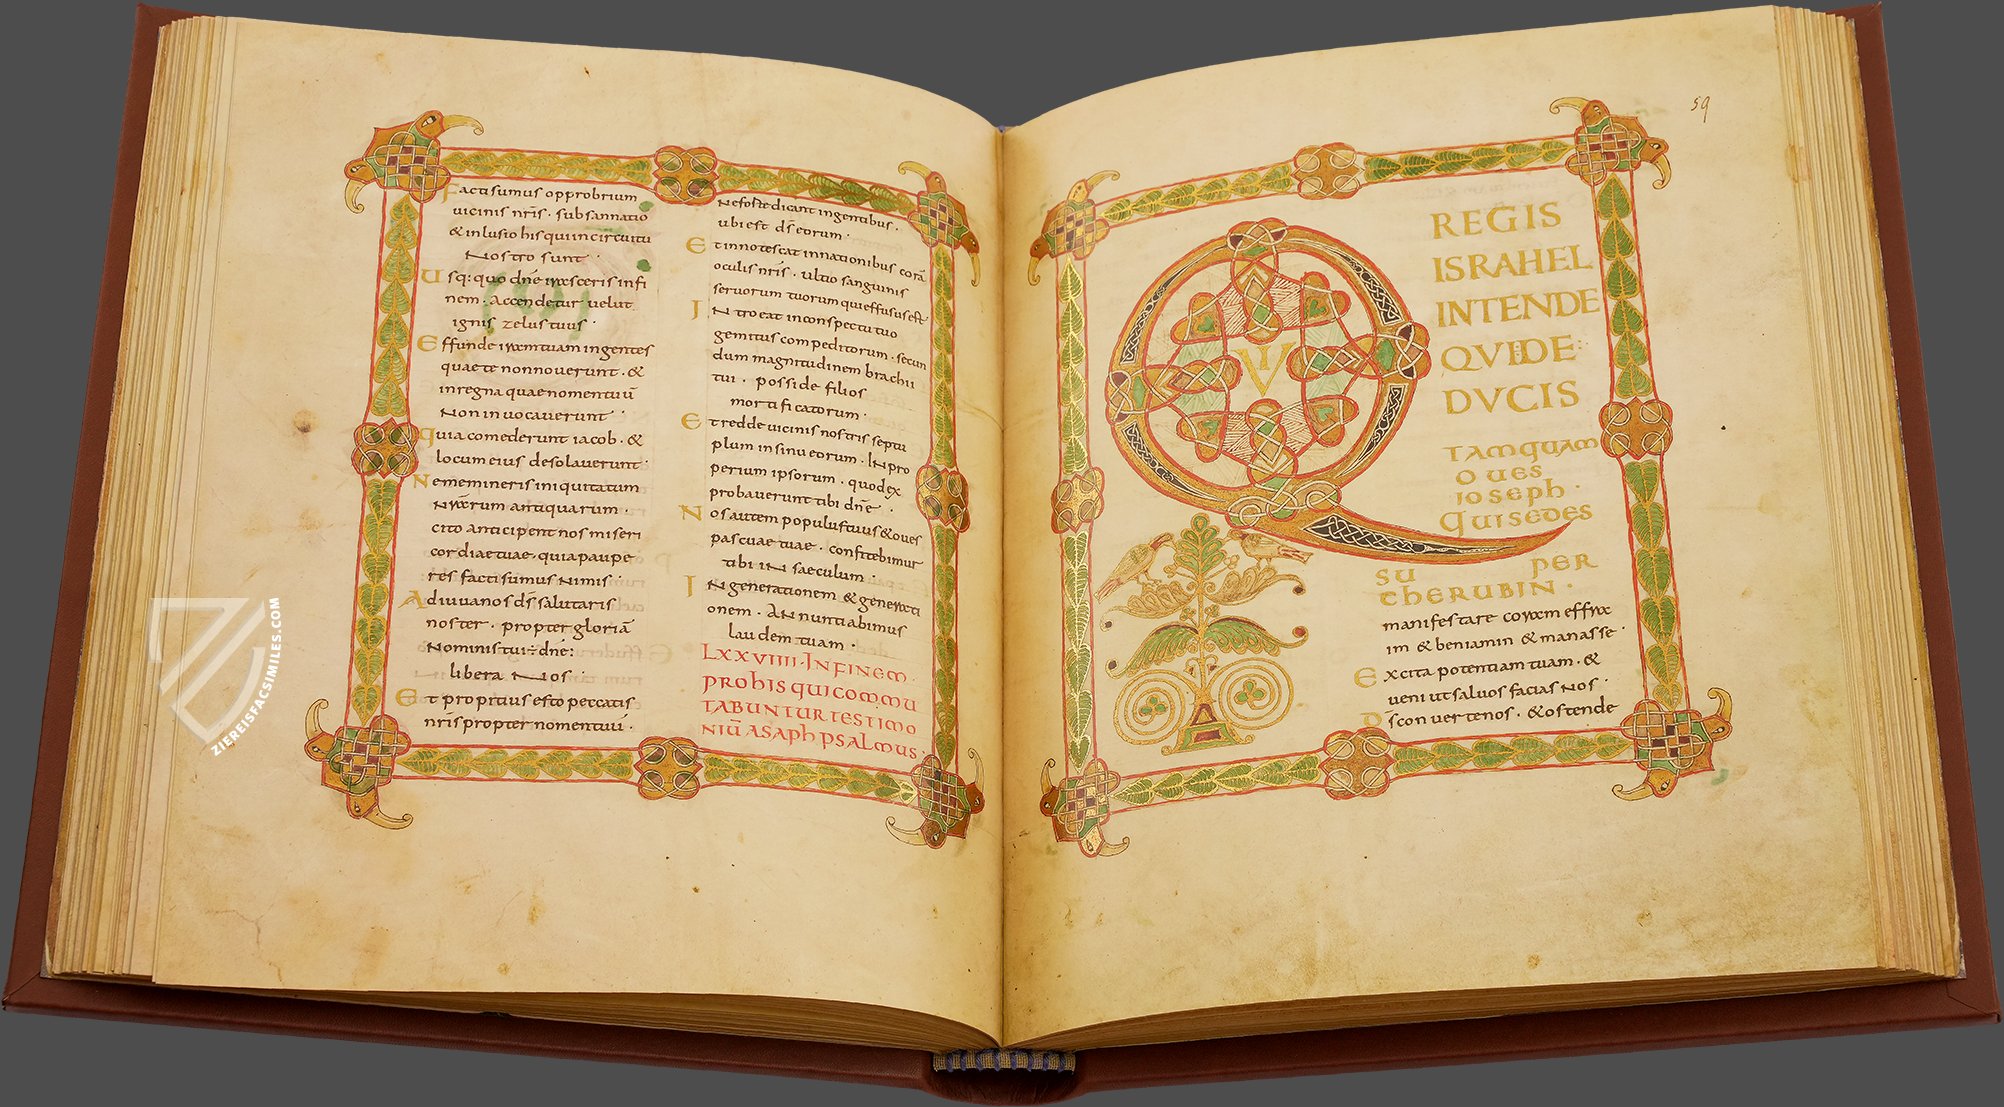 Factisumus opprobrium
uicinis nr̄is · subsannatio
& inlusio his qui incircuitu
Nostro sunt ·
Usq: quo dn̄e irasceris infi
nem · Accendetur uelut
ignis zelus tuus ·
Effunde iram tuam in gentes
quae te non nouerunt · &
in regna quae nomen tuū
Non inuocauerunt ·
Quia comederunt iacob · &
locum eius desolauerunt ·
Ne memineris iniquitatum
Nrarum antiquarum ·
cito anticipent nos miseri
cordiae tuae · quia paupe
res facti sumus Nimis ·
Adiuua nos ds̄ salutaris
noster · propter gloriā
Nominis tui dn̄e:
libera Nos ·
Et propitius esto peccatis
nris propter nomen tuū ·
Ne forte dicant in gentibus ·
ubi est ds̄ eorum ·
Et innotescat in nationibus corā
oculis nr̄is · ultio sanguinis
seruorum tuorum qui effusus est
Introeat in conspectu tuo
gemitus compeditorum · secun
dum magnitudinem brachii
tui · posside filios
mortificatorum ·
Et redde uicinis nostris septu
plum in sinu eorum · Inpro
perium ipsorum · quod ex
probauerunt tibi dn̄e ·
Nos autem populus tuus & oues
pascuae tuae · confitebimur
tibi in saeculum ·
In generationem & generati
onem · Annuntiabimus
laudem tuam ·
LXXVIIII · IN FINEM ·
PRO HIS QUI COMMU
TABUNTUR TESTIMO
NIŪ ASAPH PSALMUS ·
59
QUI
REGIS
ISRAHEL
INTENDE
QVI DE
DVCIS
TAMQUAM
OUES
IOSEPH ·
QUI SEDES
SU PER
CHERUBIN ·
manifestare coram effra
im & beniamin & manasse ·
Excita potentiam tuam · &
ueni ut saluos facias Nos ·
Ds̄ conuerte nos · & ostende
ZIEREISFACSIMILES.COM